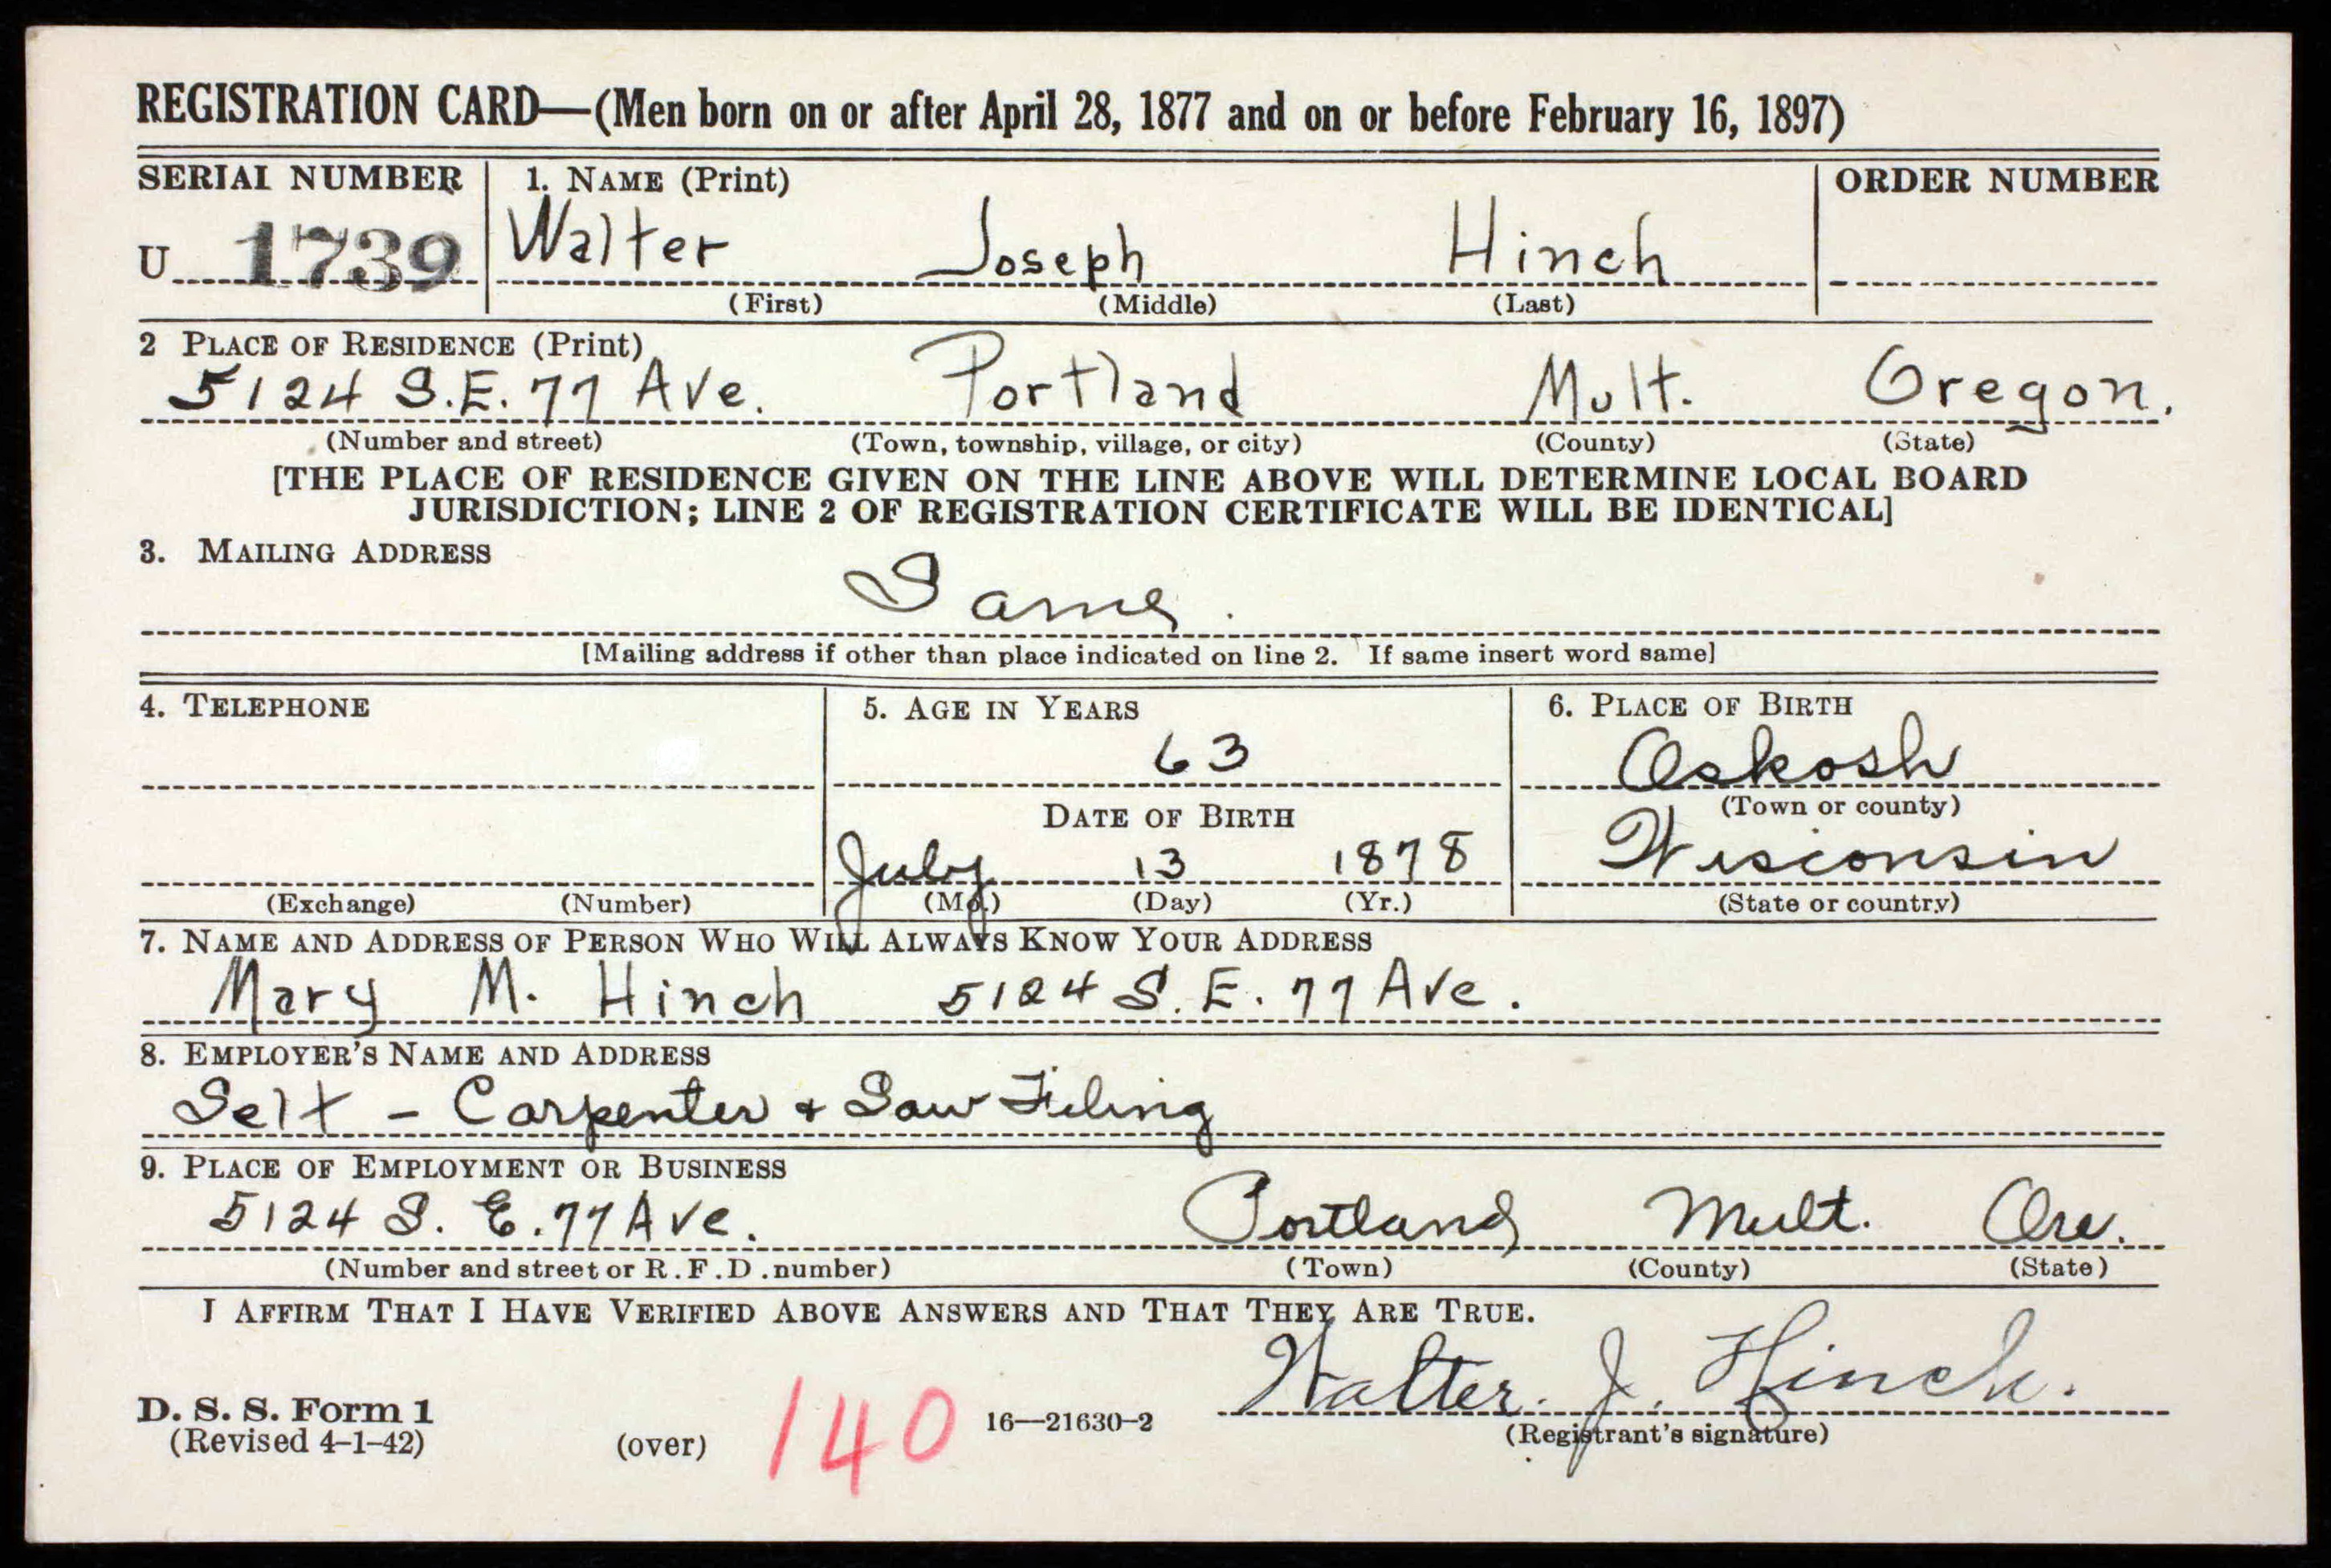 REGISTRATION CARD—(Men born on or after April 28, 1877 and on or before February 16, 1897)
SERIAL NUMBER 1. NAME (Print) ORDER NUMBER
U 1739 Walter Joseph Hinch
(First) (Middle) (Last)
2 PLACE OF RESIDENCE (Print)
5124 S.E. 77 Ave. Portland Mult. Oregon.
(Number and street) (Town, township, village, or city) (County) (State)
[THE PLACE OF RESIDENCE GIVEN ON THE LINE ABOVE WILL DETERMINE LOCAL BOARD
JURISDICTION; LINE 2 OF REGISTRATION CERTIFICATE WILL BE IDENTICAL]
3. MAILING ADDRESS
Same.
[Mailing address if other than place indicated on line 2. If same insert word same]
4. TELEPHONE 5. AGE IN YEARS 6. PLACE OF BIRTH
63 Oskosh
DATE OF BIRTH (Town or county)
July 13 1878 Wisconsin
(Exchange) (Number) (Mo.) (Day) (Yr.) (State or country)
7. NAME AND ADDRESS OF PERSON WHO WILL ALWAYS KNOW YOUR ADDRESS
Mary M. Hinch 5124 S.E. 77 Ave.
8. EMPLOYER'S NAME AND ADDRESS
Self - Carpenter + Saw Filing
9. PLACE OF EMPLOYMENT OR BUSINESS
5124 S. E. 77 Ave. Portland Mult. Ore.
(Number and street or R.F.D. number) (Town) (County) (State)
I AFFIRM THAT I HAVE VERIFIED ABOVE ANSWERS AND THAT THEY ARE TRUE.
Walter. J. Hinch.
D. S. S. Form 1 (Registrant's signature)
(Revised 4-1-42) (over) 140 16—21630-2